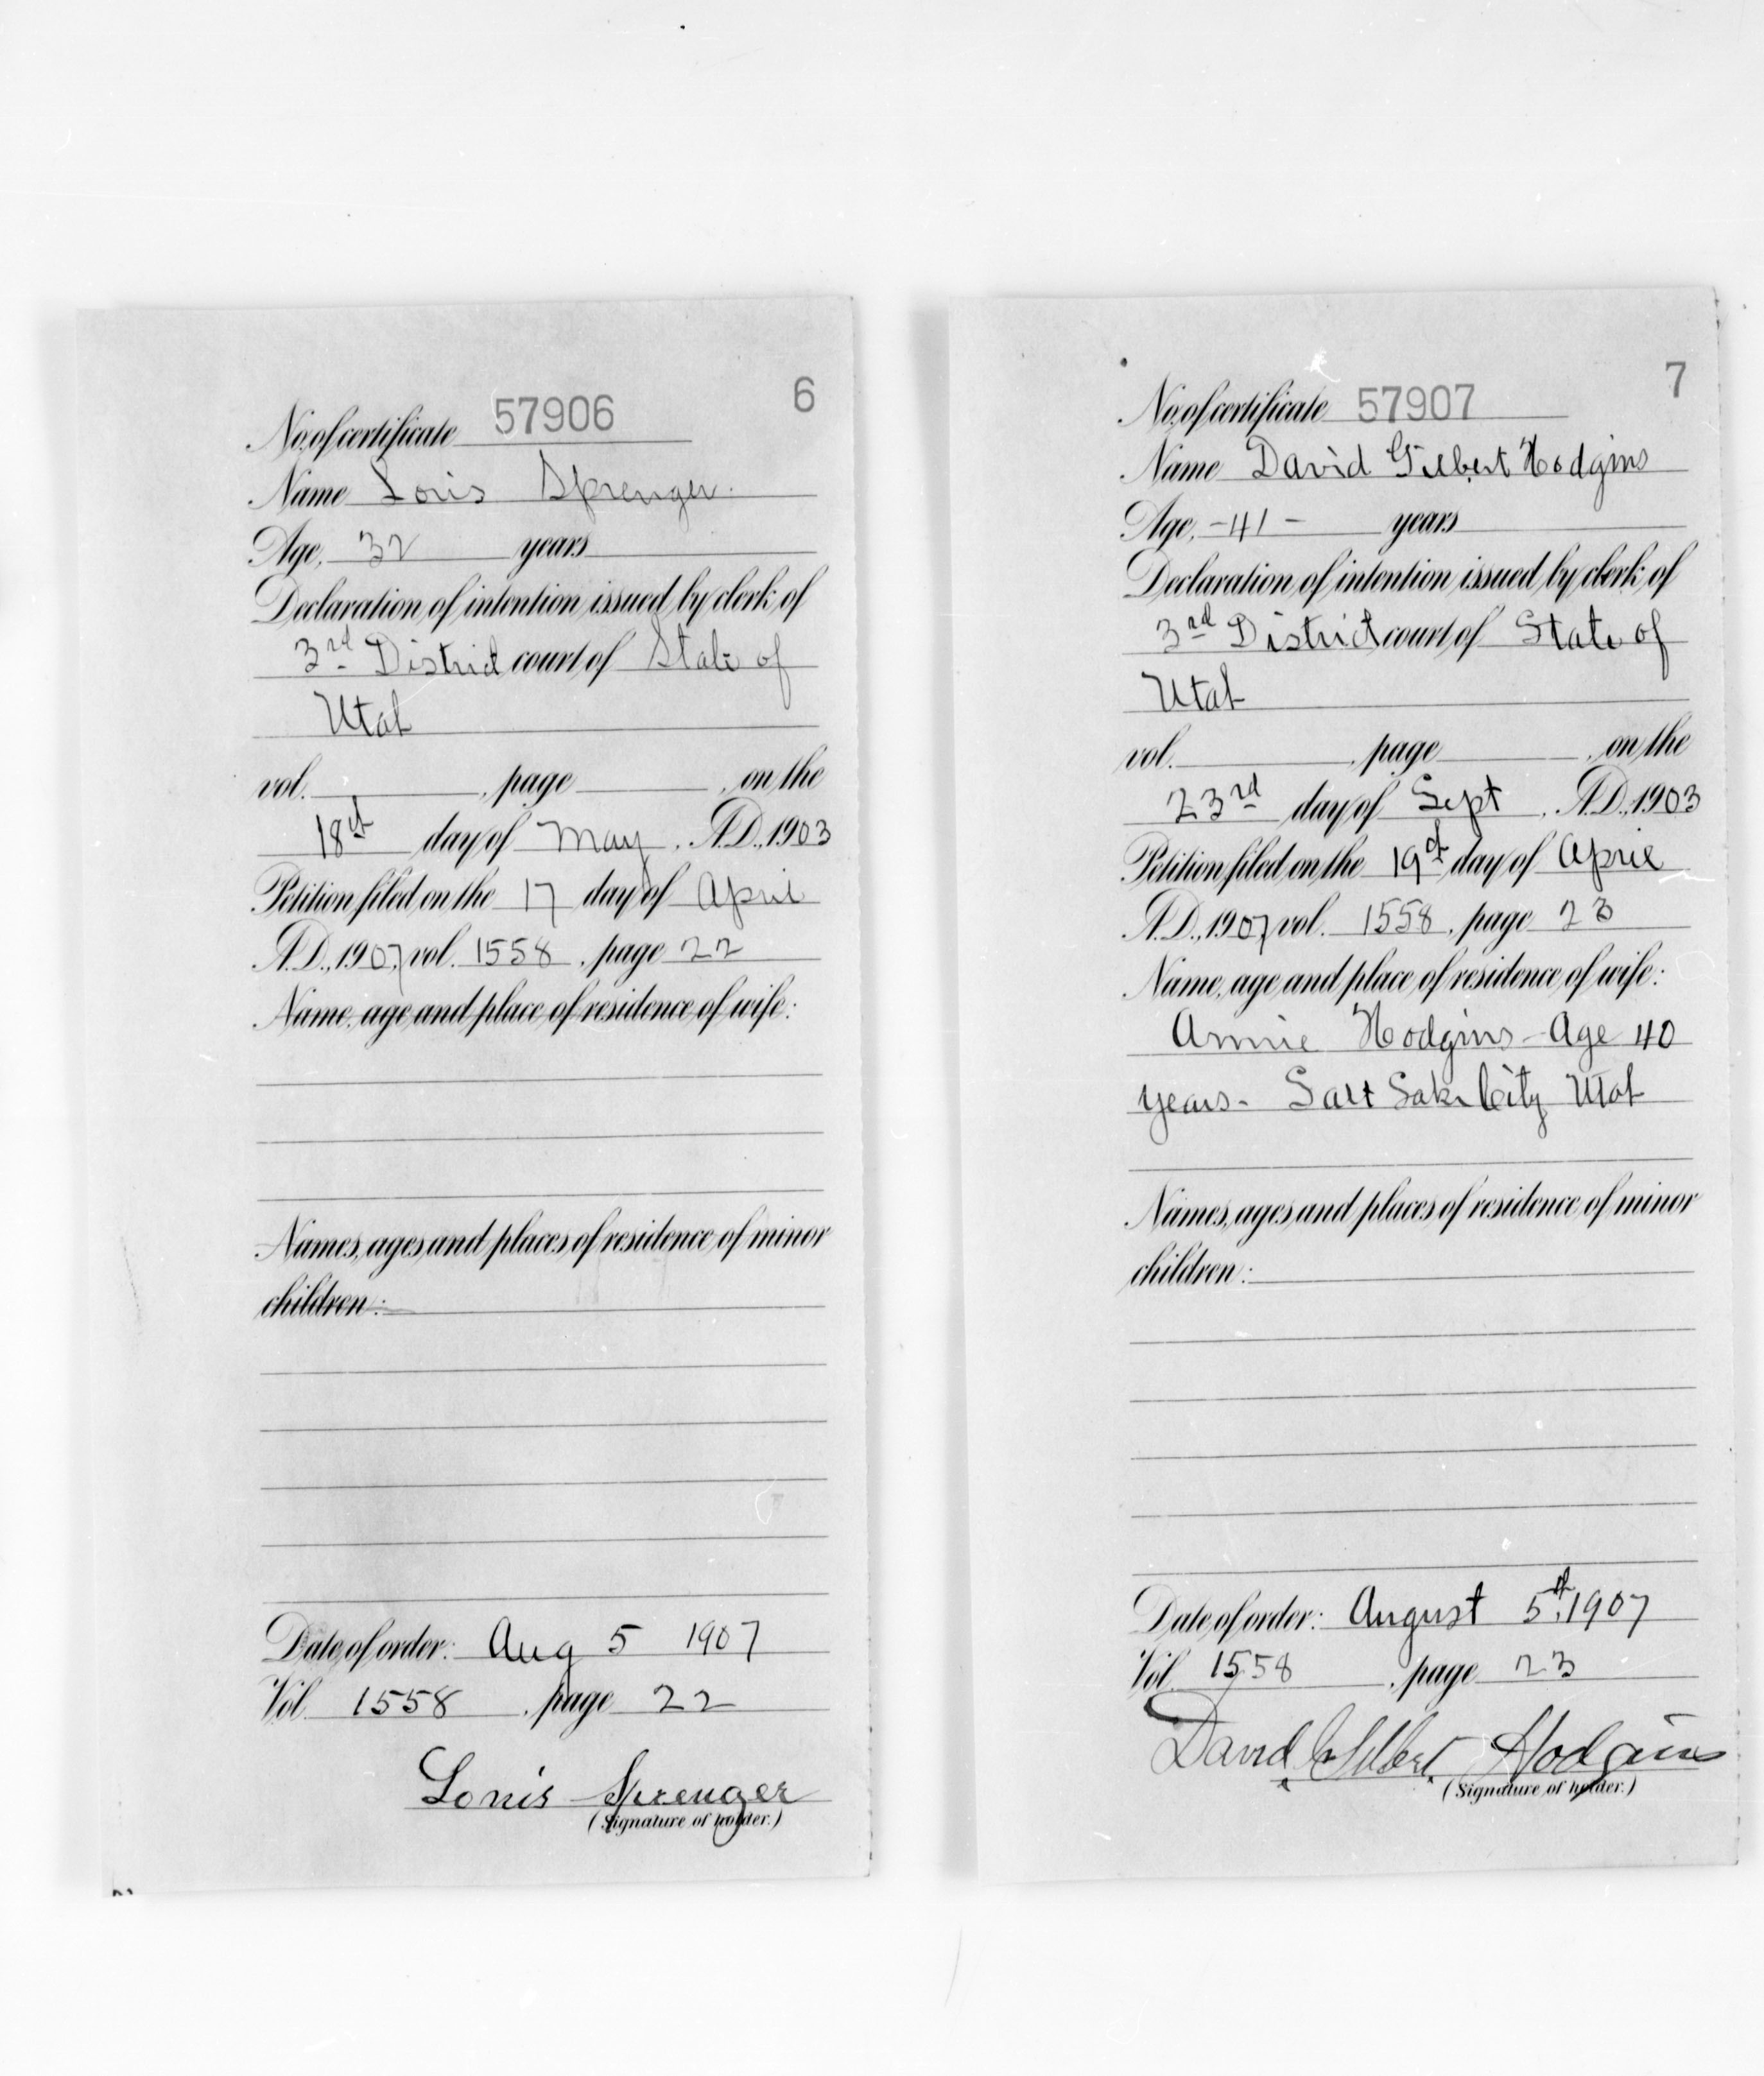 6
No. of certificate 57906
Name Louis Sprenger.
Age, 32 years
Declaration of intention issued by clerk of
3rd District court of State of
Utah
vol. , page , on the
18th day of May, A.D., 1903
Petition filed on the 17 day of April
A.D., 1907, vol. 1558, page 22
Name, age and place of residence of wife:
Names, ages and places of residence of minor
children:
Date of order: Aug 5 1907
Vol. 1558, page 22
Louis Sprenger
(Signature of holder.)
7
No. of certificate 57907
Name David Gilbert Hodgins
Age, -41- years
Declaration of intention issued by clerk of
3rd District court of State of
Utah
vol. , page , on the
23rd day of Sept, A.D., 1903
Petition filed on the 19th day of April
A.D., 1907, vol. 1558, page 23
Name, age and place of residence of wife:
Annie Hodgins - Age 40
years - Salt Lake City Utah
Names, ages and places of residence of minor
children:
Date of order: August 5th, 1907
Vol. 1558, page 23
David Gilbert Hodgins
(Signature of holder.)